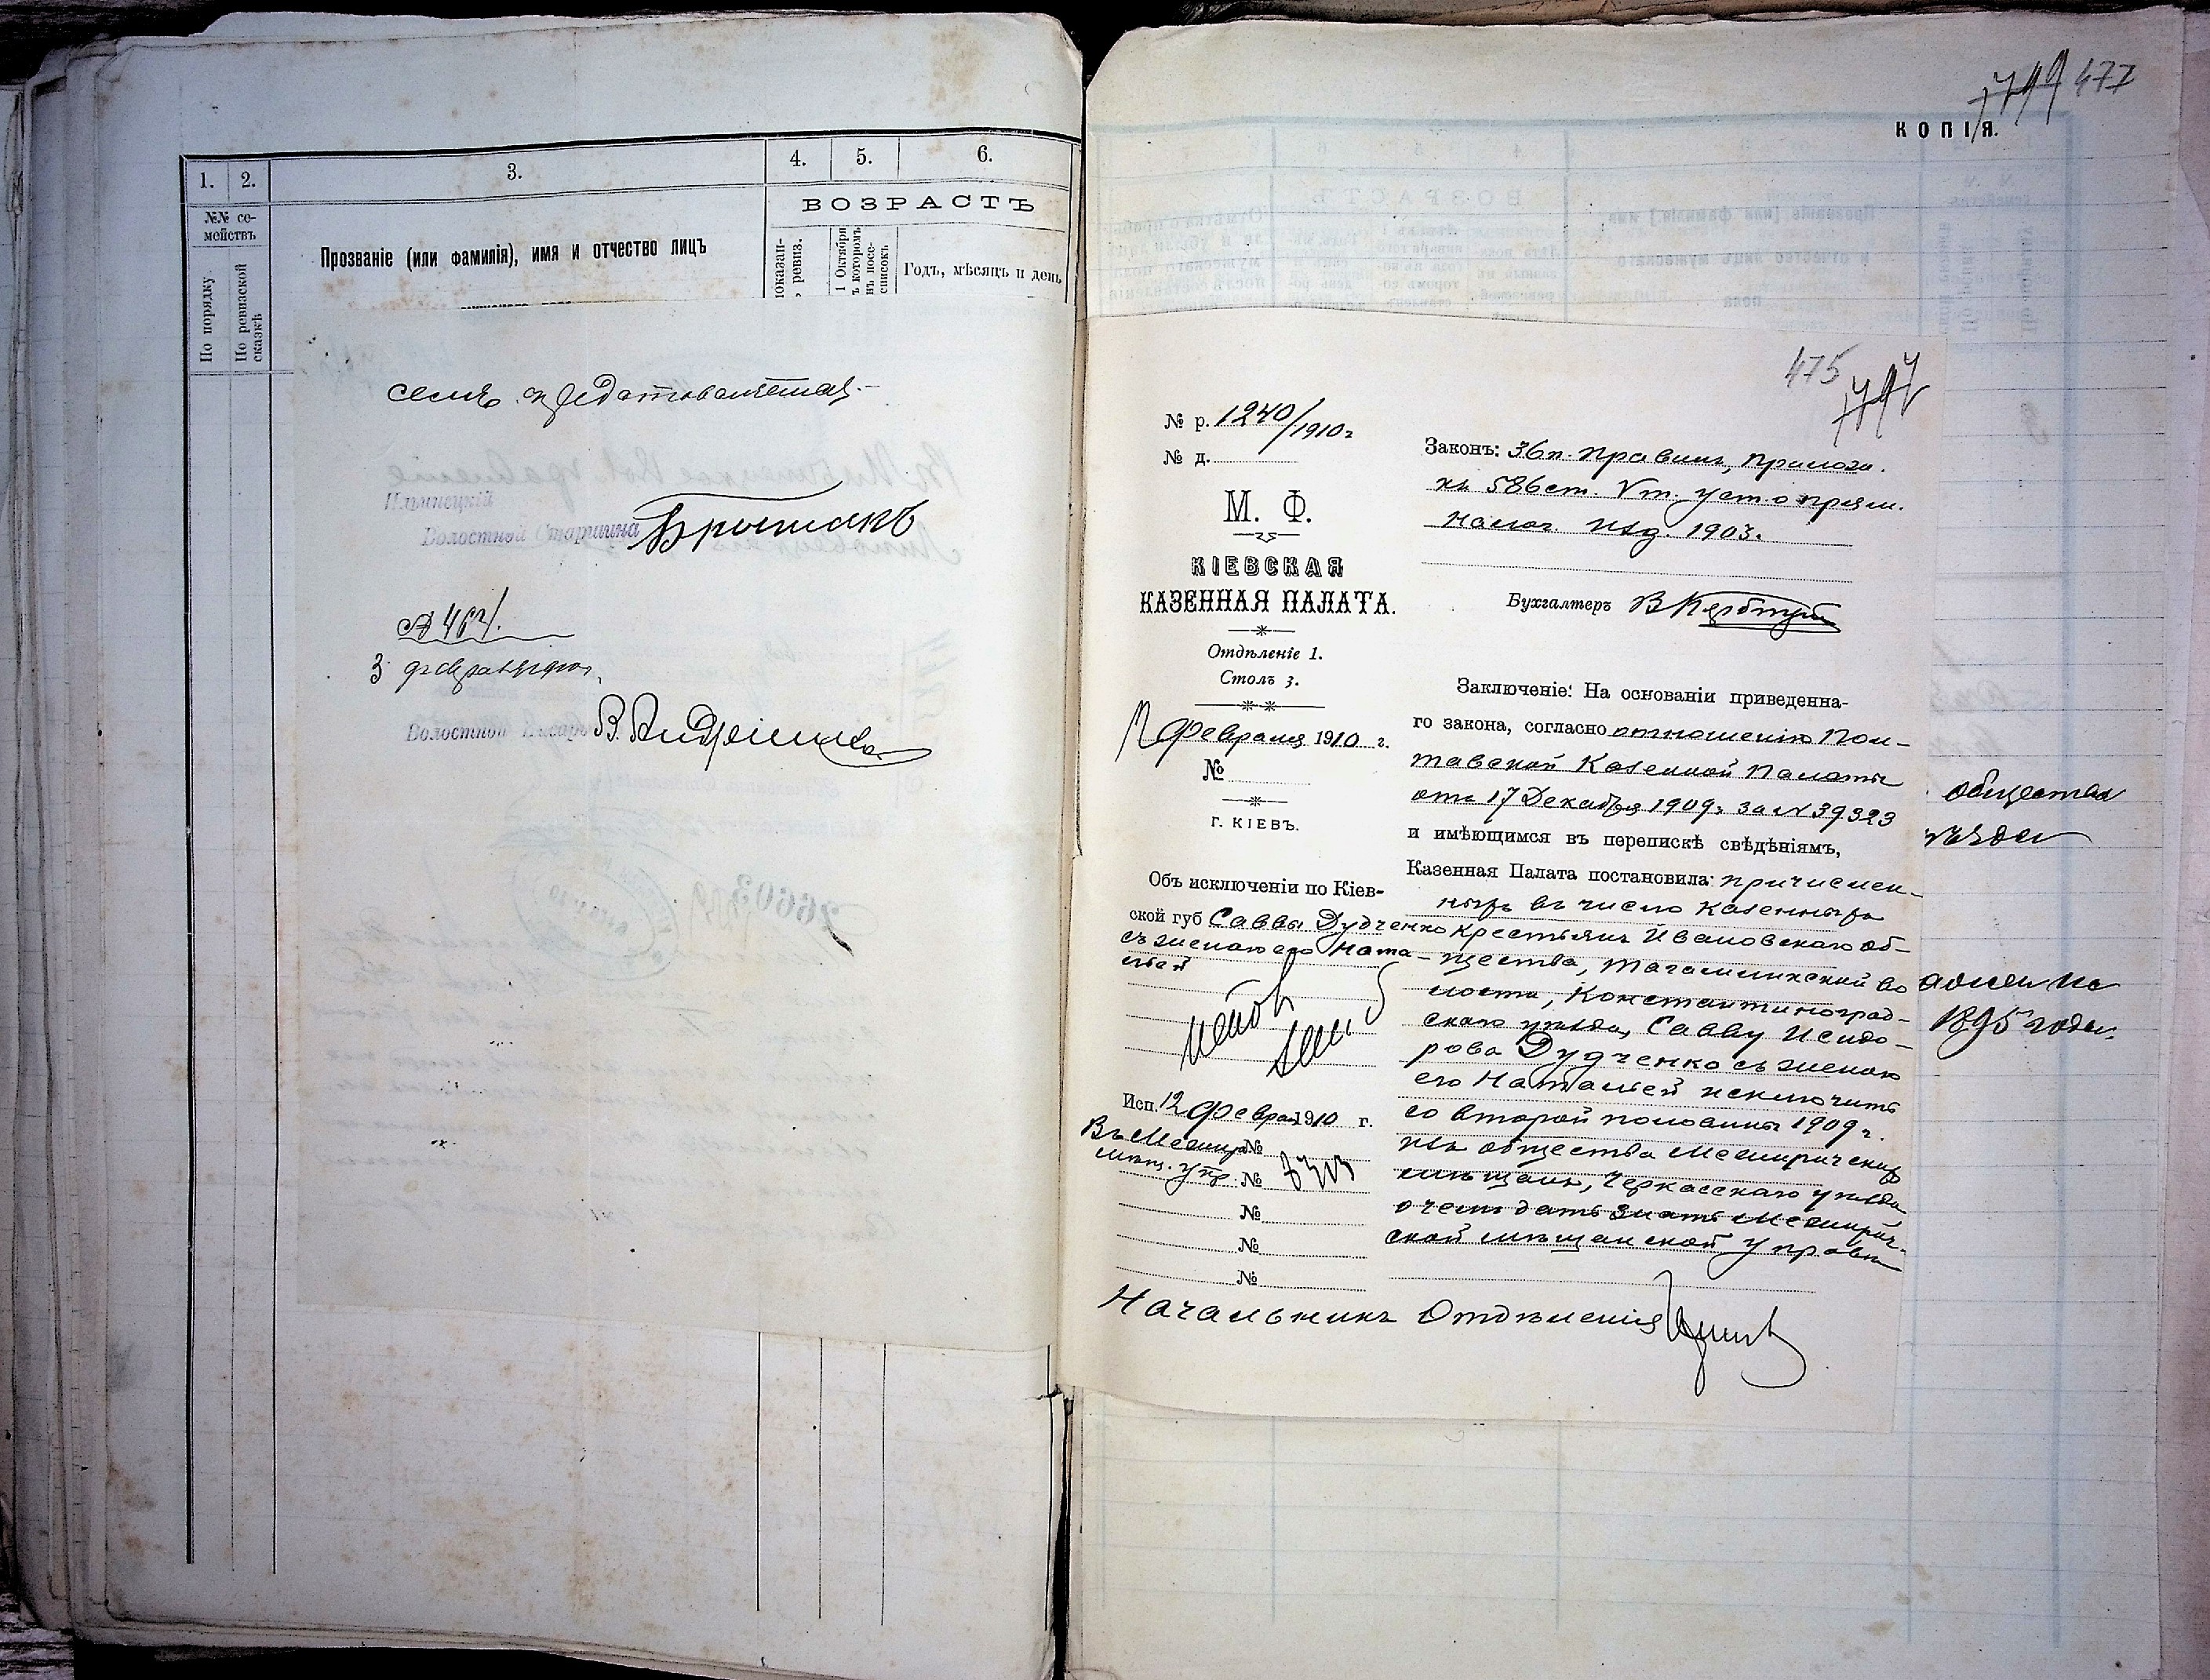 1. 2. 3. 4. 5. 6.
ВОЗРАСТЪ
№№ се-
мействъ
По порядку
По ревизской
сказкѣ
Прозваніе (или фамилія), имя и отчество лицъ
1 Октября
въ которомъ
Годъ, мѣсяцъ и день
семъ
Ильинецкій
Волостной Старшина
3 февраля 1910 г.
Волостной Писарь
477
КОПІЯ.
475
№ р. 1240/1910 г
№ д.
М. Ф.
КІЕВСКАЯ
КАЗЕННАЯ ПАЛАТА.
Отдѣленіе 1.
Столъ 3.
Февраля 1910 г.
№
Г. КІЕВЪ.
Объ исключеніи по Кіев-
ской губ Саввы Дудченко
съ женою его Ната-
льей
Исп. 12 Февра 1910 г.
Въ Межир №
мѣщ. упр. №
№
№
№
Законъ: 36 п. Правилъ, прилож.
къ 586 ст. V т. уст. о прям.
налог. изд. 1903.
Бухгалтеръ
Заключеніе: На основаніи приведенна-
го закона, согласно отношенію Пол-
тавской Казенной Палаты
отъ 17 Декабря 1909 г. за № 39323
и имѣющимся въ перепискѣ свѣдѣніямъ,
Казенная Палата постановила: причислен-
ныхъ въ число казенныхъ
крестьянъ Ивановскаго об-
щества, Тагамлыкской во
лости, Константиноград-
скаго уѣзда, Савву Исидо-
рова Дудченко съ женою
его Натальей исключить
со второй половины 1909 г.
изъ общества Межиричскихъ
мѣщанъ, Черкасскаго уѣзда
о чемъ дать знать Межирич-
ской мѣщанской управѣ
Начальникъ Отдѣленія
общества
уѣзда
1895 года.